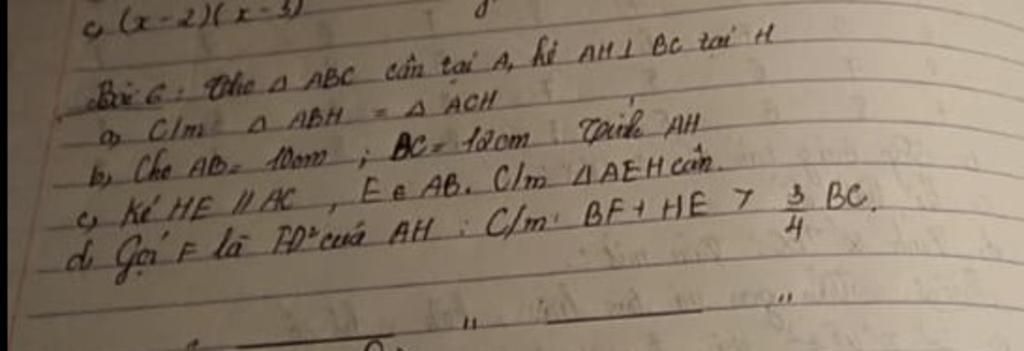 c, (x-2)(x-3)
Bài 6: Cho Δ ABC cân tại A, kẻ AH ⊥ BC tại H
a) C/m Δ ABH = Δ ACH
b, Cho AB = 10cm ; BC = 12cm Tính AH
c, Kẻ HE // AC , E ∈ AB. C/m ΔAEH cân.
d, Gọi F là TĐ² của AH : C/m: BF + HE > 3/4 BC.